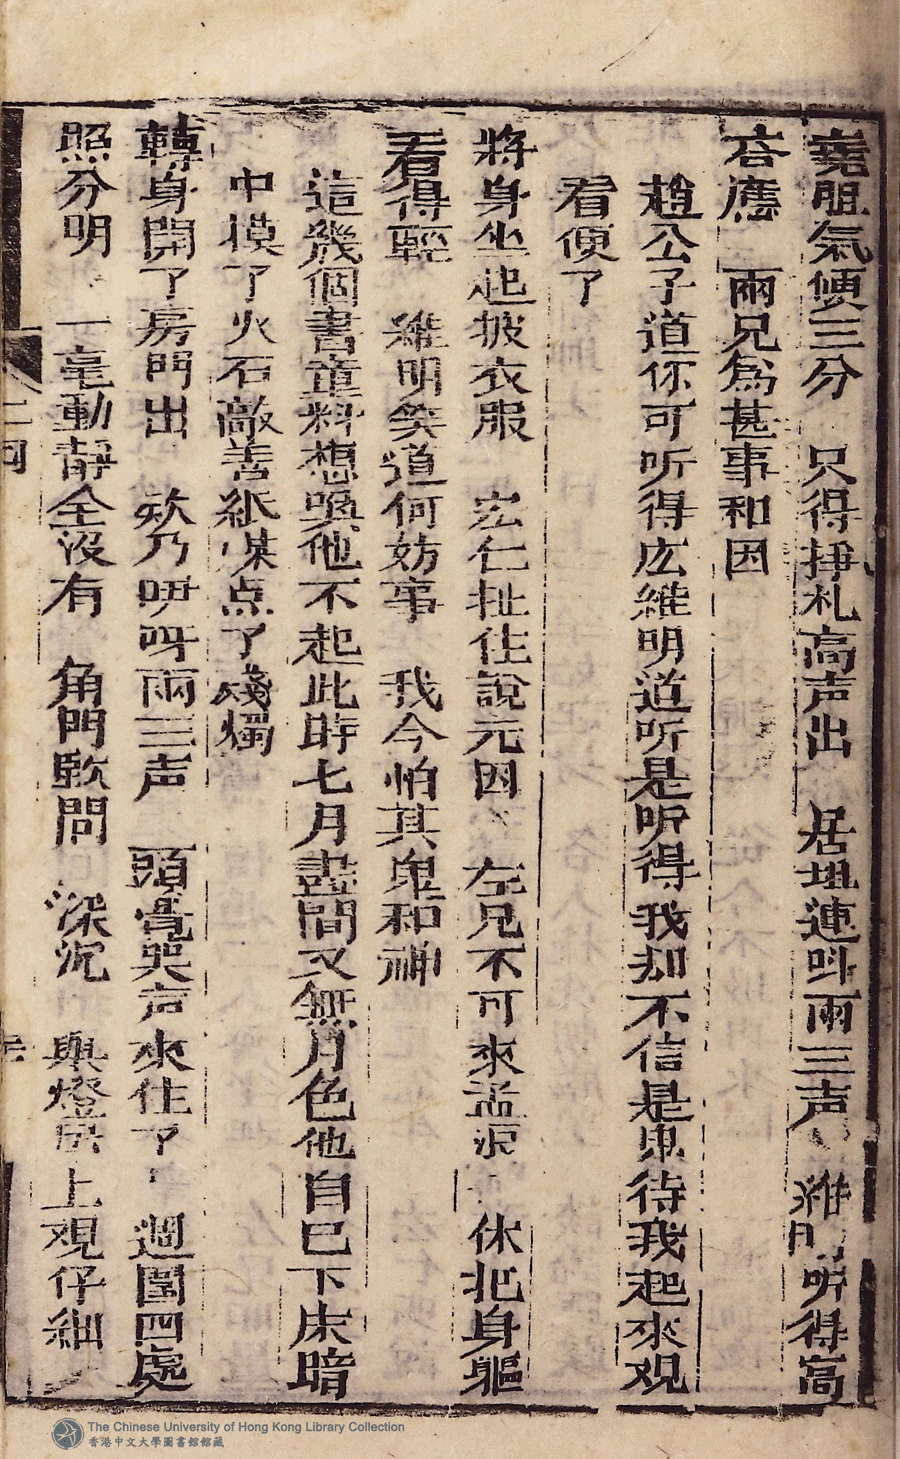 堯胆氣傾三分　只得掙札高声出　居坦連呌兩三声　維明听得高
答應　兩兄為甚事和因
趙公子道你可听得庅維明道听是听得我却不信是鬼待我起來观
看便了
將身坐起披衣服　宏仁扯住說元因　左兄不可來孟浪　休把身軀
看得輕　維明笑道何妨事　我今怕甚鬼和神
這幾個書童料想喚他不起此時七月盡間又無月色他自已下床暗
中摸了火石敲善紙煤点了殘燭
轉身開了房門出　欸乃咿呀兩三声　頭覺哭声來住了　週圍四處
照分明　一毫動靜全沒有　角門歇問　深沉　與燈　上观仔細
二囘
The Chinese University of Hong Kong Library Collection
香港中文大學圖書館館藏